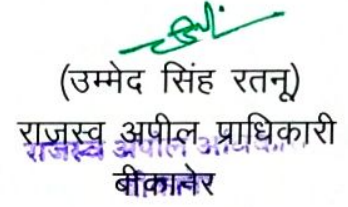 (उम्मेद सिंह रतनू)
राजस्व अपील प्राधिकारी
राजस्व अपील
बीकानेर